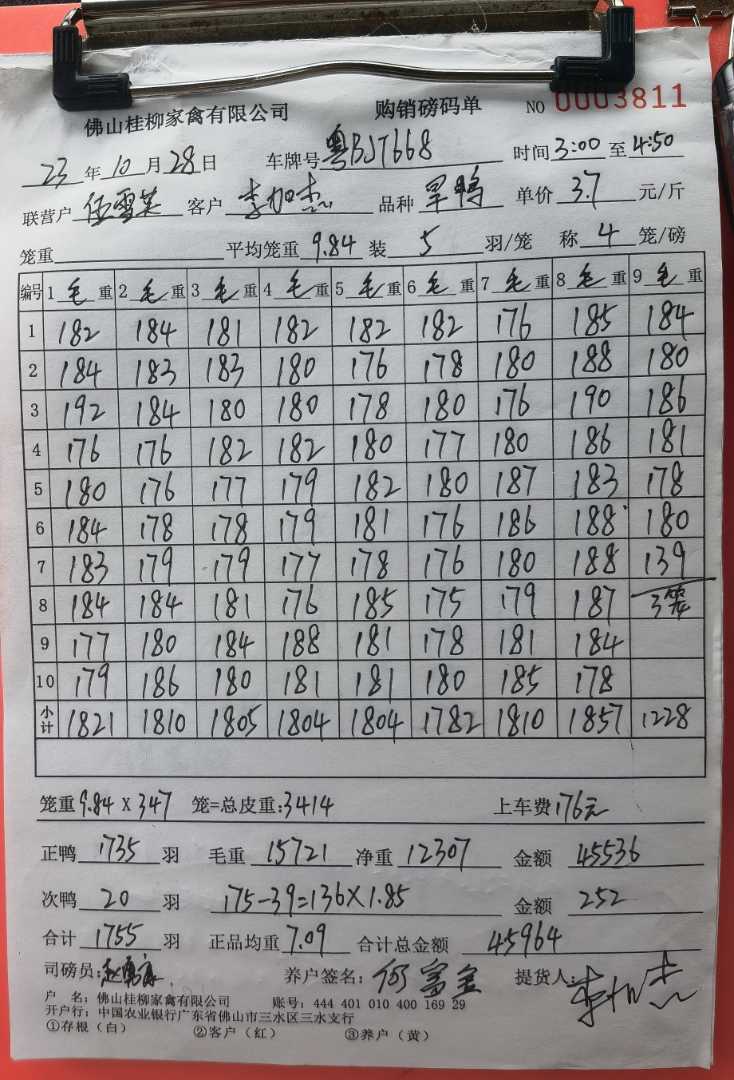 佛山桂柳家禽有限公司 购销磅码单 NO 0003811
23 年 10 月 28 日 车牌号 粤BJ7668 时间 3:00 至 4:50
联营户 伍雪英 客户 李加杰 品种 旱鸭 单价 3.7 元/斤
笼重 平均笼重 9.84 装 5 羽/笼 称 4 笼/磅
编号 1 毛 重 2 毛 重 3 毛 重 4 毛 重 5 毛 重 6 毛 重 7 毛 重 8 毛 重 9 毛 重
1 182 184 181 182 182 182 176 185 184
2 184 183 183 180 176 178 180 188 180
3 192 184 180 180 178 180 176 190 186
4 176 176 182 182 180 177 180 186 181
5 180 176 177 179 182 180 187 183 178
6 184 178 178 179 181 176 186 188 180
7 183 179 179 177 178 176 180 188 139
8 184 184 181 176 185 175 179 187 3笼
9 177 180 184 188 181 178 181 184
10 179 186 180 181 181 180 185 178
小计 1821 1810 1805 1804 1804 1782 1810 1857 1228
笼重 9.84 X 347 笼=总皮重:3414 上车费 176元
正鸭 1735 羽 毛重 15721 净重 12307 金额 45536
次鸭 20 羽 175-39=136×1.85 金额 252
合计 1755 羽 正品均重 7.09 合计总金额 45964
司磅员: 养户签名: 何富全 提货人: 李加杰
户 名: 佛山桂柳家禽有限公司 账号: 444 401 010 400 169 29
开户行: 中国农业银行广东省佛山市三水区三水支行
①存根（白） ②客户（红） ③养户（黄）